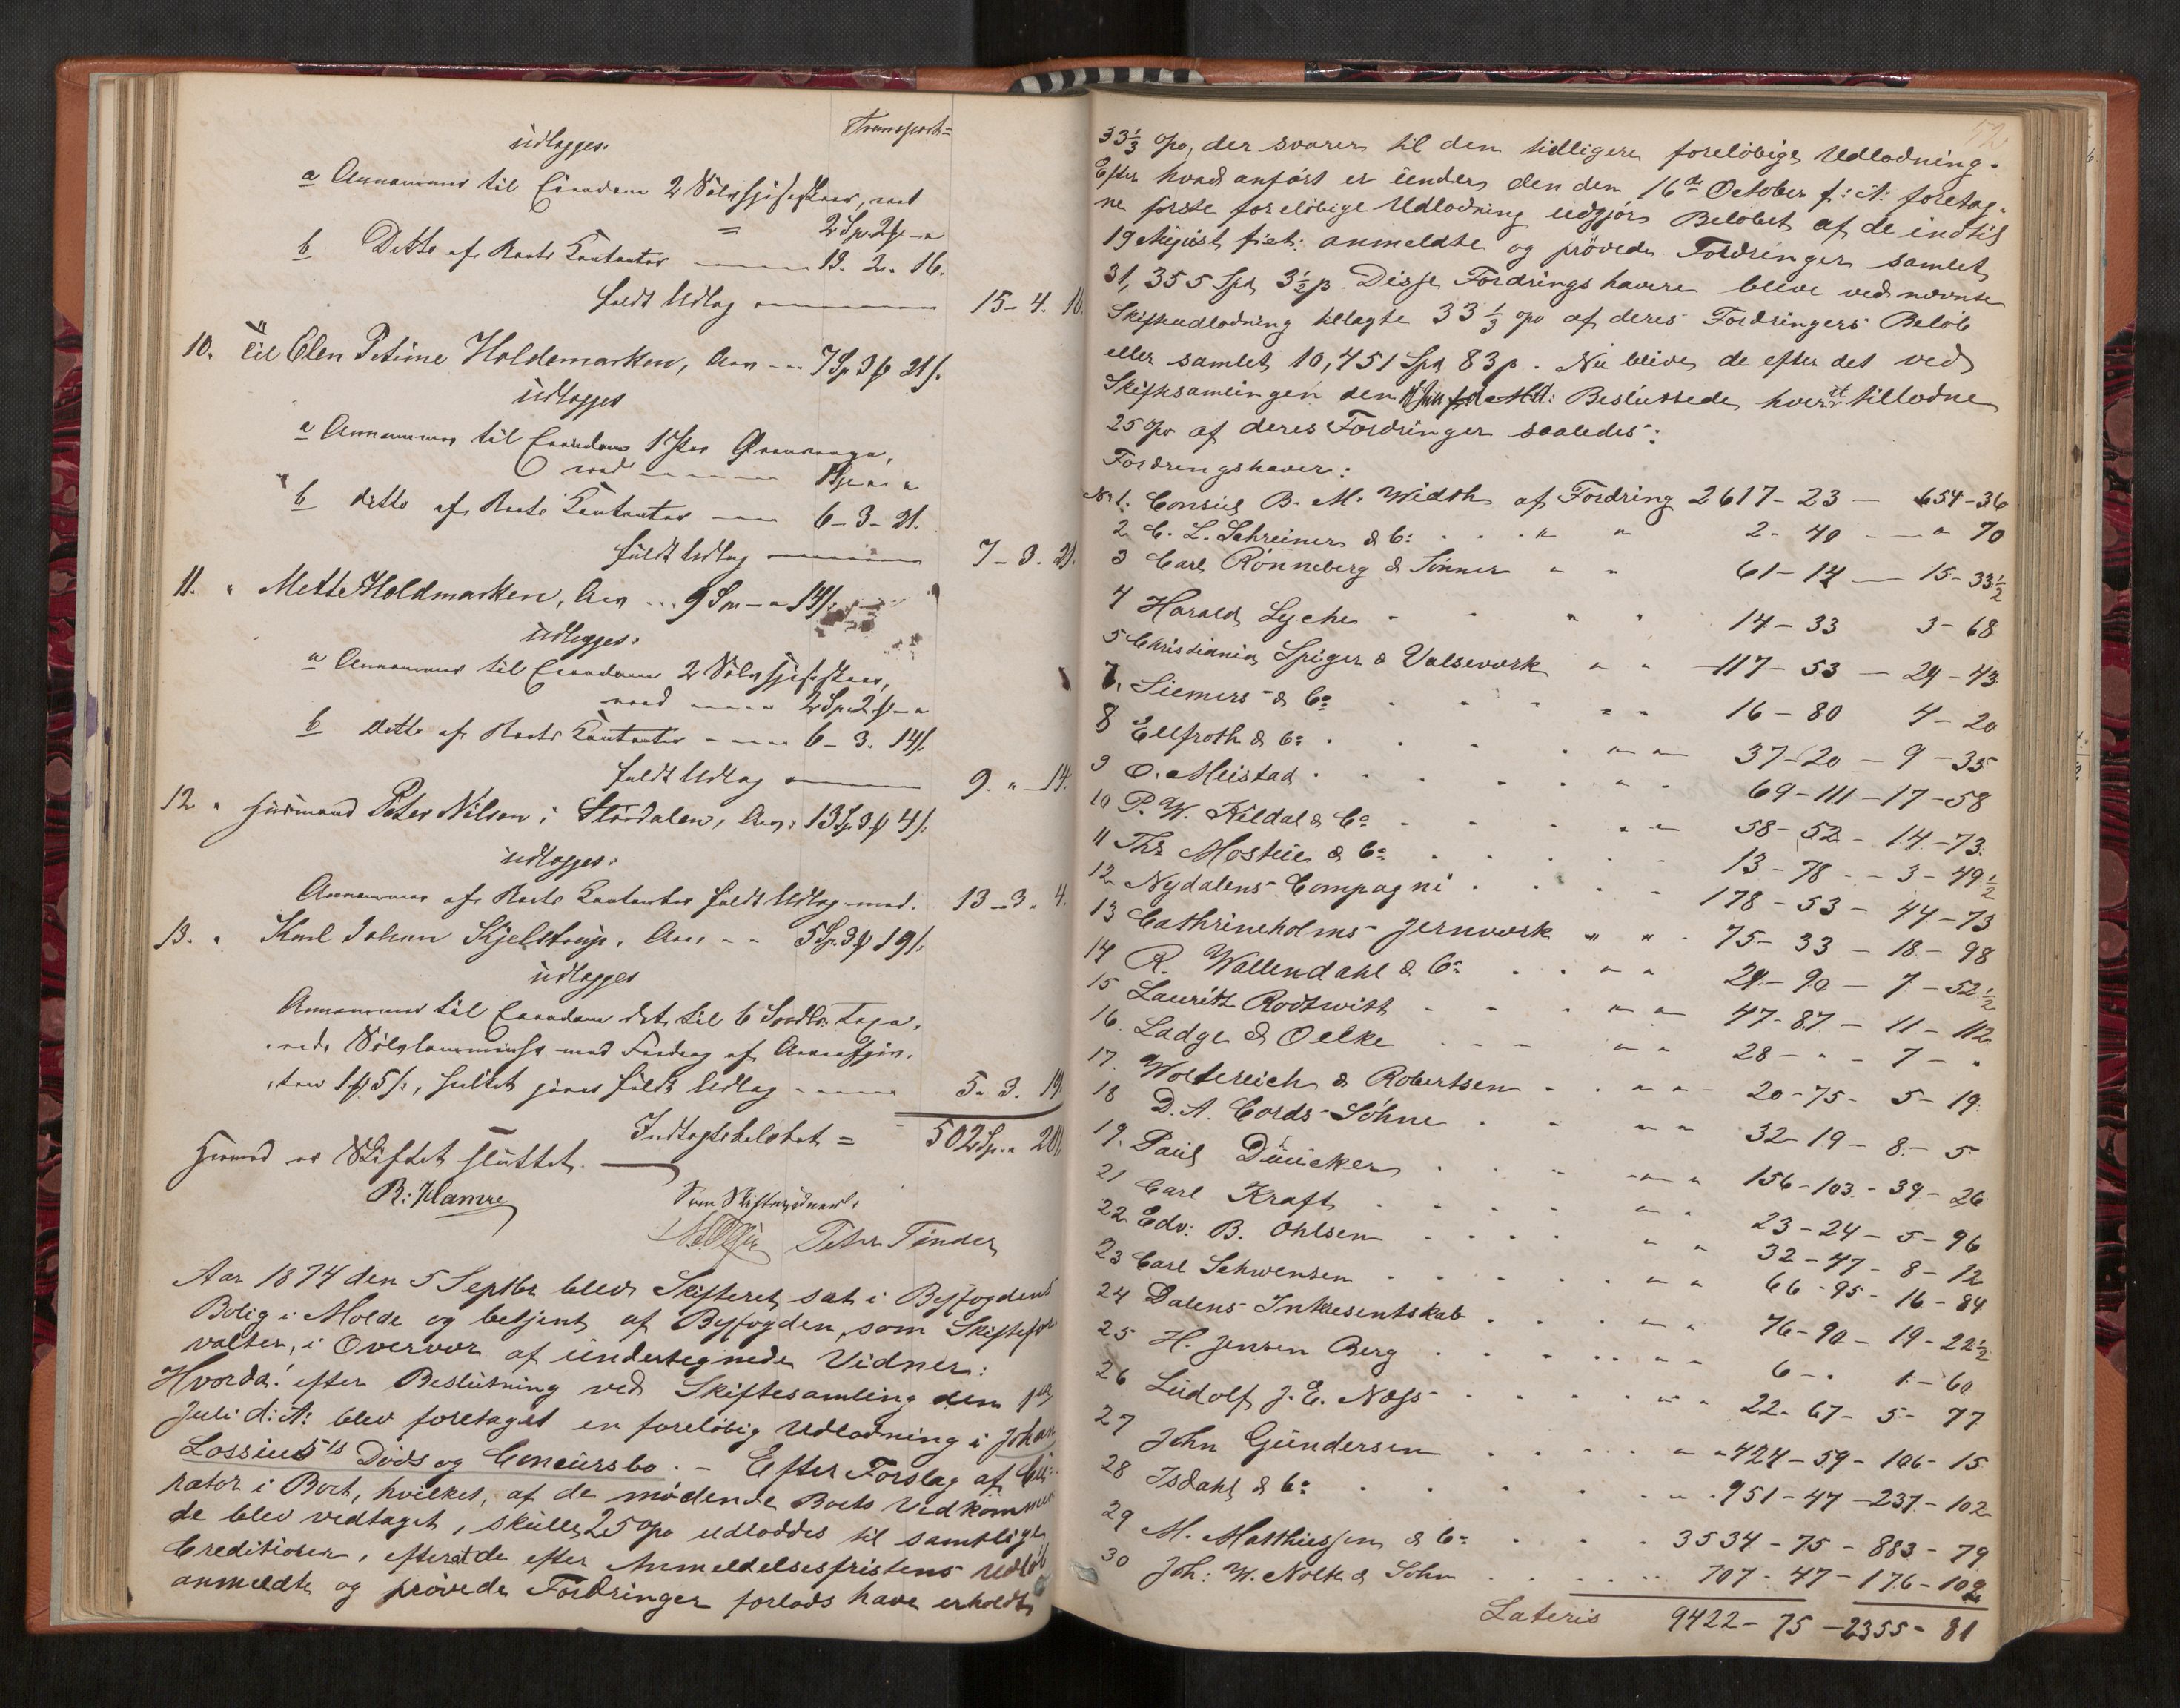 Transport=
udlægges.
a Annammes til Eiendom 2 Sölvspiseskeer, vad
= 2 Sp. 2 - "
b Ditto af Boets Contanter 13. 2. 16.
fuldt Udlag 15 - 4. 16.
10. Til Elen Petrine Holdemarken, Arv - - 7 Sp 3 21 s.
udlægges
a Annammes til Eiendom 1
b ditto af Boets Contanter 6 - 3 - 21.
fuldt Udlag 7 - 3. 21.
11. " Mette Holdmarken, Arv ... 9 Sp - " 14 s.
udlægges.
a Annammes til Eiendom 2 Sölvspiseskeer,
2 Sp. 2 - "
b ditto af Boets Contanter 6 - 3. 14 s.
fuldt Udlag 9. " - 14.
12 " Huusmand Peter Nilsen i Stördalen, Arv. 13 Sp. 3 4 s.
udlægges.
Annammes af Boets Contanter fuldt Udlag med. 13 - 3. 4.
13. " Karl Johan Kjelstrup, Arv - - 5 Sp. 3 19 s.
udlægges
Annammes til Eiendom det til 6
med Fradrag af
1 5 s., hvilket gjöres fuldt Udlag 5. 3. 19
Indtægtsbeløbet = 502 Sp. " 20 s.
Hermed er Skiftet sluttet.
R: Hamre Som Skiftevidner:
Peter Tinder
Aar 1874 den 5 Septbr blev Skifteret sat i Byfogdens
Bolig i Molde og betjent af Byfogden, som Skiftefor
valter, i Overvær af undertegnede Vidner:
Hvorda: efter Beslutning ved Skiftesamling den 1ste
Juli d: A: blev foretaget en foreløbig Udlodning i Johan
Lossius's Döds og Concursbo. - Efter Forslag af Cu-
rator i Boet, hvilket, af de mødende Boets Vedkommen
de blev vedtaget, skulle 25 % udloddes til samtlige
Creditorer, efterat de efter Anmeldelsesfristens Udløb
anmeldte og prövede Fordringer forlods have erholdt
52
33 1/3 %, der svarer til den tidligere foreløbige Udlodning.
Efter hvad anfört er under den den 16de October f: A: foretag-
ne förste foreløbige Udlodning udgjör Beløbet af de indtil
19 August anmeldte og prövede Fordringer samlet
31,355 Spd 3 1/2 β. Disse Fordringshavere bleve ved nævnte
Skifteudlodning tillagte 33 1/3 % af deres Fordringers Beløb
eller samlet 10,451 Spd 83 β. Nu blive de efter det ved
Skiftesamlingen den Besluttede, hver tillodne
25 % af deres Fordringer saaledes:
Fordringshaver:
No 1: Consul B. M. Width af Fordring 2617 - 23 - 654 - 36
2 C. L. Schreiner & Co: . . . " " 2 - 40 - " 70
3 Carl Rönneberg & Sönner " " 61 - 14 - 15 - 33 1/2
4 Harald Lyche - - " " 14 - 33 3 - 68
5 Christiania Spiger & Valseværk " " 117 - 53 - 29 - 43
7. Siemers & Co . . . " " 16 - 80 4 - 20
8 Ellfroth & Co . . . " " 37 - 20 - 9 - 35
9 O. Meistad . . . " " 69 - 111 - 17 - 58
10 P. W. Kildal & Co . . . " " 58 - 52 - 14 - 73
11 Ths. Mostue & Co . . . . 13 - 78 - - 3 - 49 1/2
12 Nydalens Compagni . . . . 178 - 53 - 44 - 73
13 Cathrineholms Jernværk " " 75 - 33 - 18 - 98
14 R. Wallendahl & Co . . " " 29 - 90 - 7 - 52 1/2
15 Lauritz Rodtwitt - - " " 47 - 87 - 11 - 112
16. Ladge & Oelke - - - " " 28 - " - 7 - "
17. Woltereich & Robertsen . . " " 20 - 75 - 5 - 19
18 D. A. Cords Söhne . . " " 32 - 19 - 8 - 5
19. Paul Düücker . . . " " 156 - 103 - 39 - 26
21 Carl Kraft . . . . " " 23 - 24 - 5 - 96
22 Edv: B. Ohlsen . . . . " " 32 - 47 - 8 - 12
23 Carl Schwensen . . . . " " 66 - 95 - 16 - 84
24 Dalens Interesentskab . . . " " 76 - 90 - 19 - 22 1/2
25 H. Jensen Berg . . . . " " 6 - " 1 - 60
26 Ludolf J. E. Noss . . . . " " 22 - 67 - 5 - 77
27 John Gundersen . . . . " " 424 - 59 - 106 - 15
28 Isdahl & Co . . . . " " 951 - 47 - 237 - 102
29 M. Matthiessen & Co . . . . 3534 - 75 - 883 - 79
30 Joh: W. Nolte & Sohn . . . . 707 - 47 - 176 - 102
Lateris 9422 - 75 - 2355 - 81